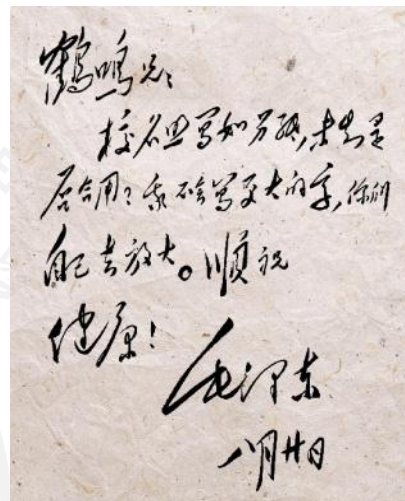 鶴鸣兄：
校名照写如另纸，未知是
否合用？我不会写更大的字，你们
自己去放大。顺祝
健康！
毛泽东
八月廿日